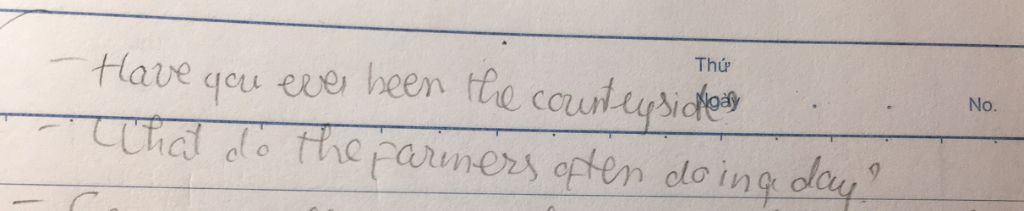 Thứ
- Have you ever been the counteyside?
Ngày No.
- What do the farmers often do ina day?